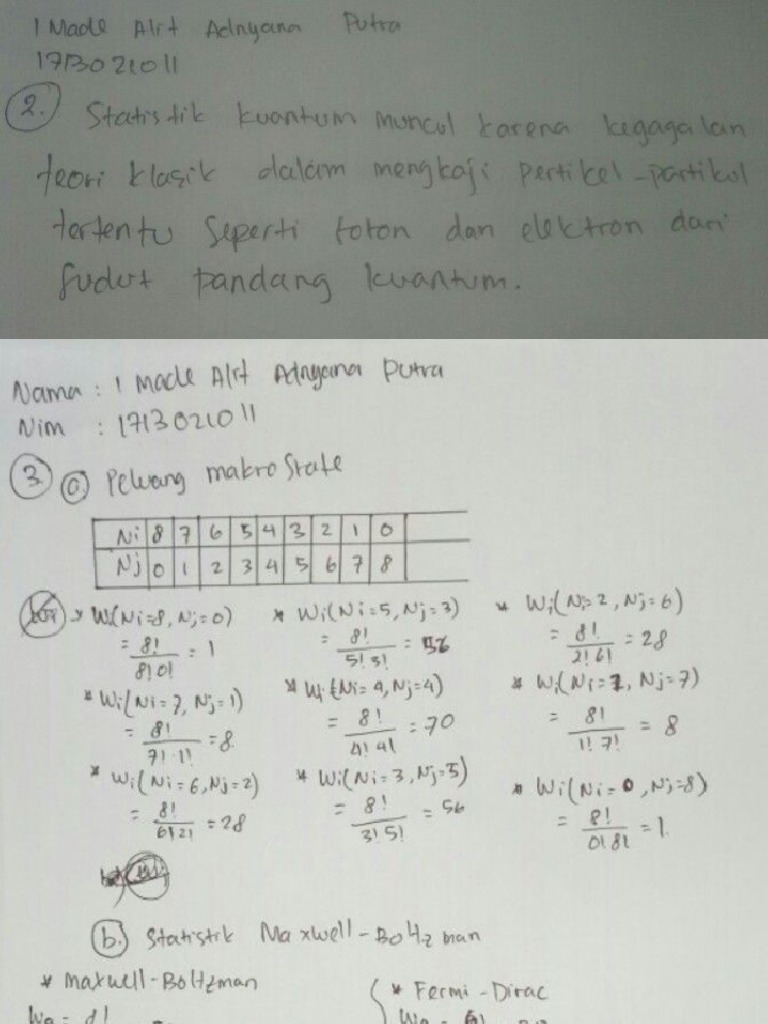 I Made Alit Adnyana Putra
1713021011
2. Statistik kuantum muncul karena kegagalan
teori klasik dalam mengkaji pertikel-partikel
tertentu seperti foton dan elektron dari
sudut pandang kuantum.
Nama : I Made Alit Adnyana Putra
Nim : 1713021011
3. a) Peluang makro state
Ni 8 7 6 5 4 3 2 1 0
Nj 0 1 2 3 4 5 6 7 8
* W(Ni=8, Nj=0)
= 8!/8!0! = 1
* Wi(Ni=7, Nj=1)
= 8!/7!·1! = 8
* Wi(Ni=6, Nj=2)
= 8!/6!2! = 28
* Wi(Ni=5, Nj=3)
= 8!/5!3! = 56
* Wi(Ni=4, Nj=4)
= 8!/4!4! = 70
* Wi(Ni=3, Nj=5)
= 8!/3!5! = 56
* Wi(Ni=2, Nj=6)
= 8!/2!6! = 28
* Wi(Ni=1, Nj=7)
= 8!/1!7! = 8
* Wi(Ni=0, Nj=8)
= 8!/0!8! = 1
b.) Statistik Maxwell-Boltzman
* Maxwell-Boltzman
* Fermi-Dirac